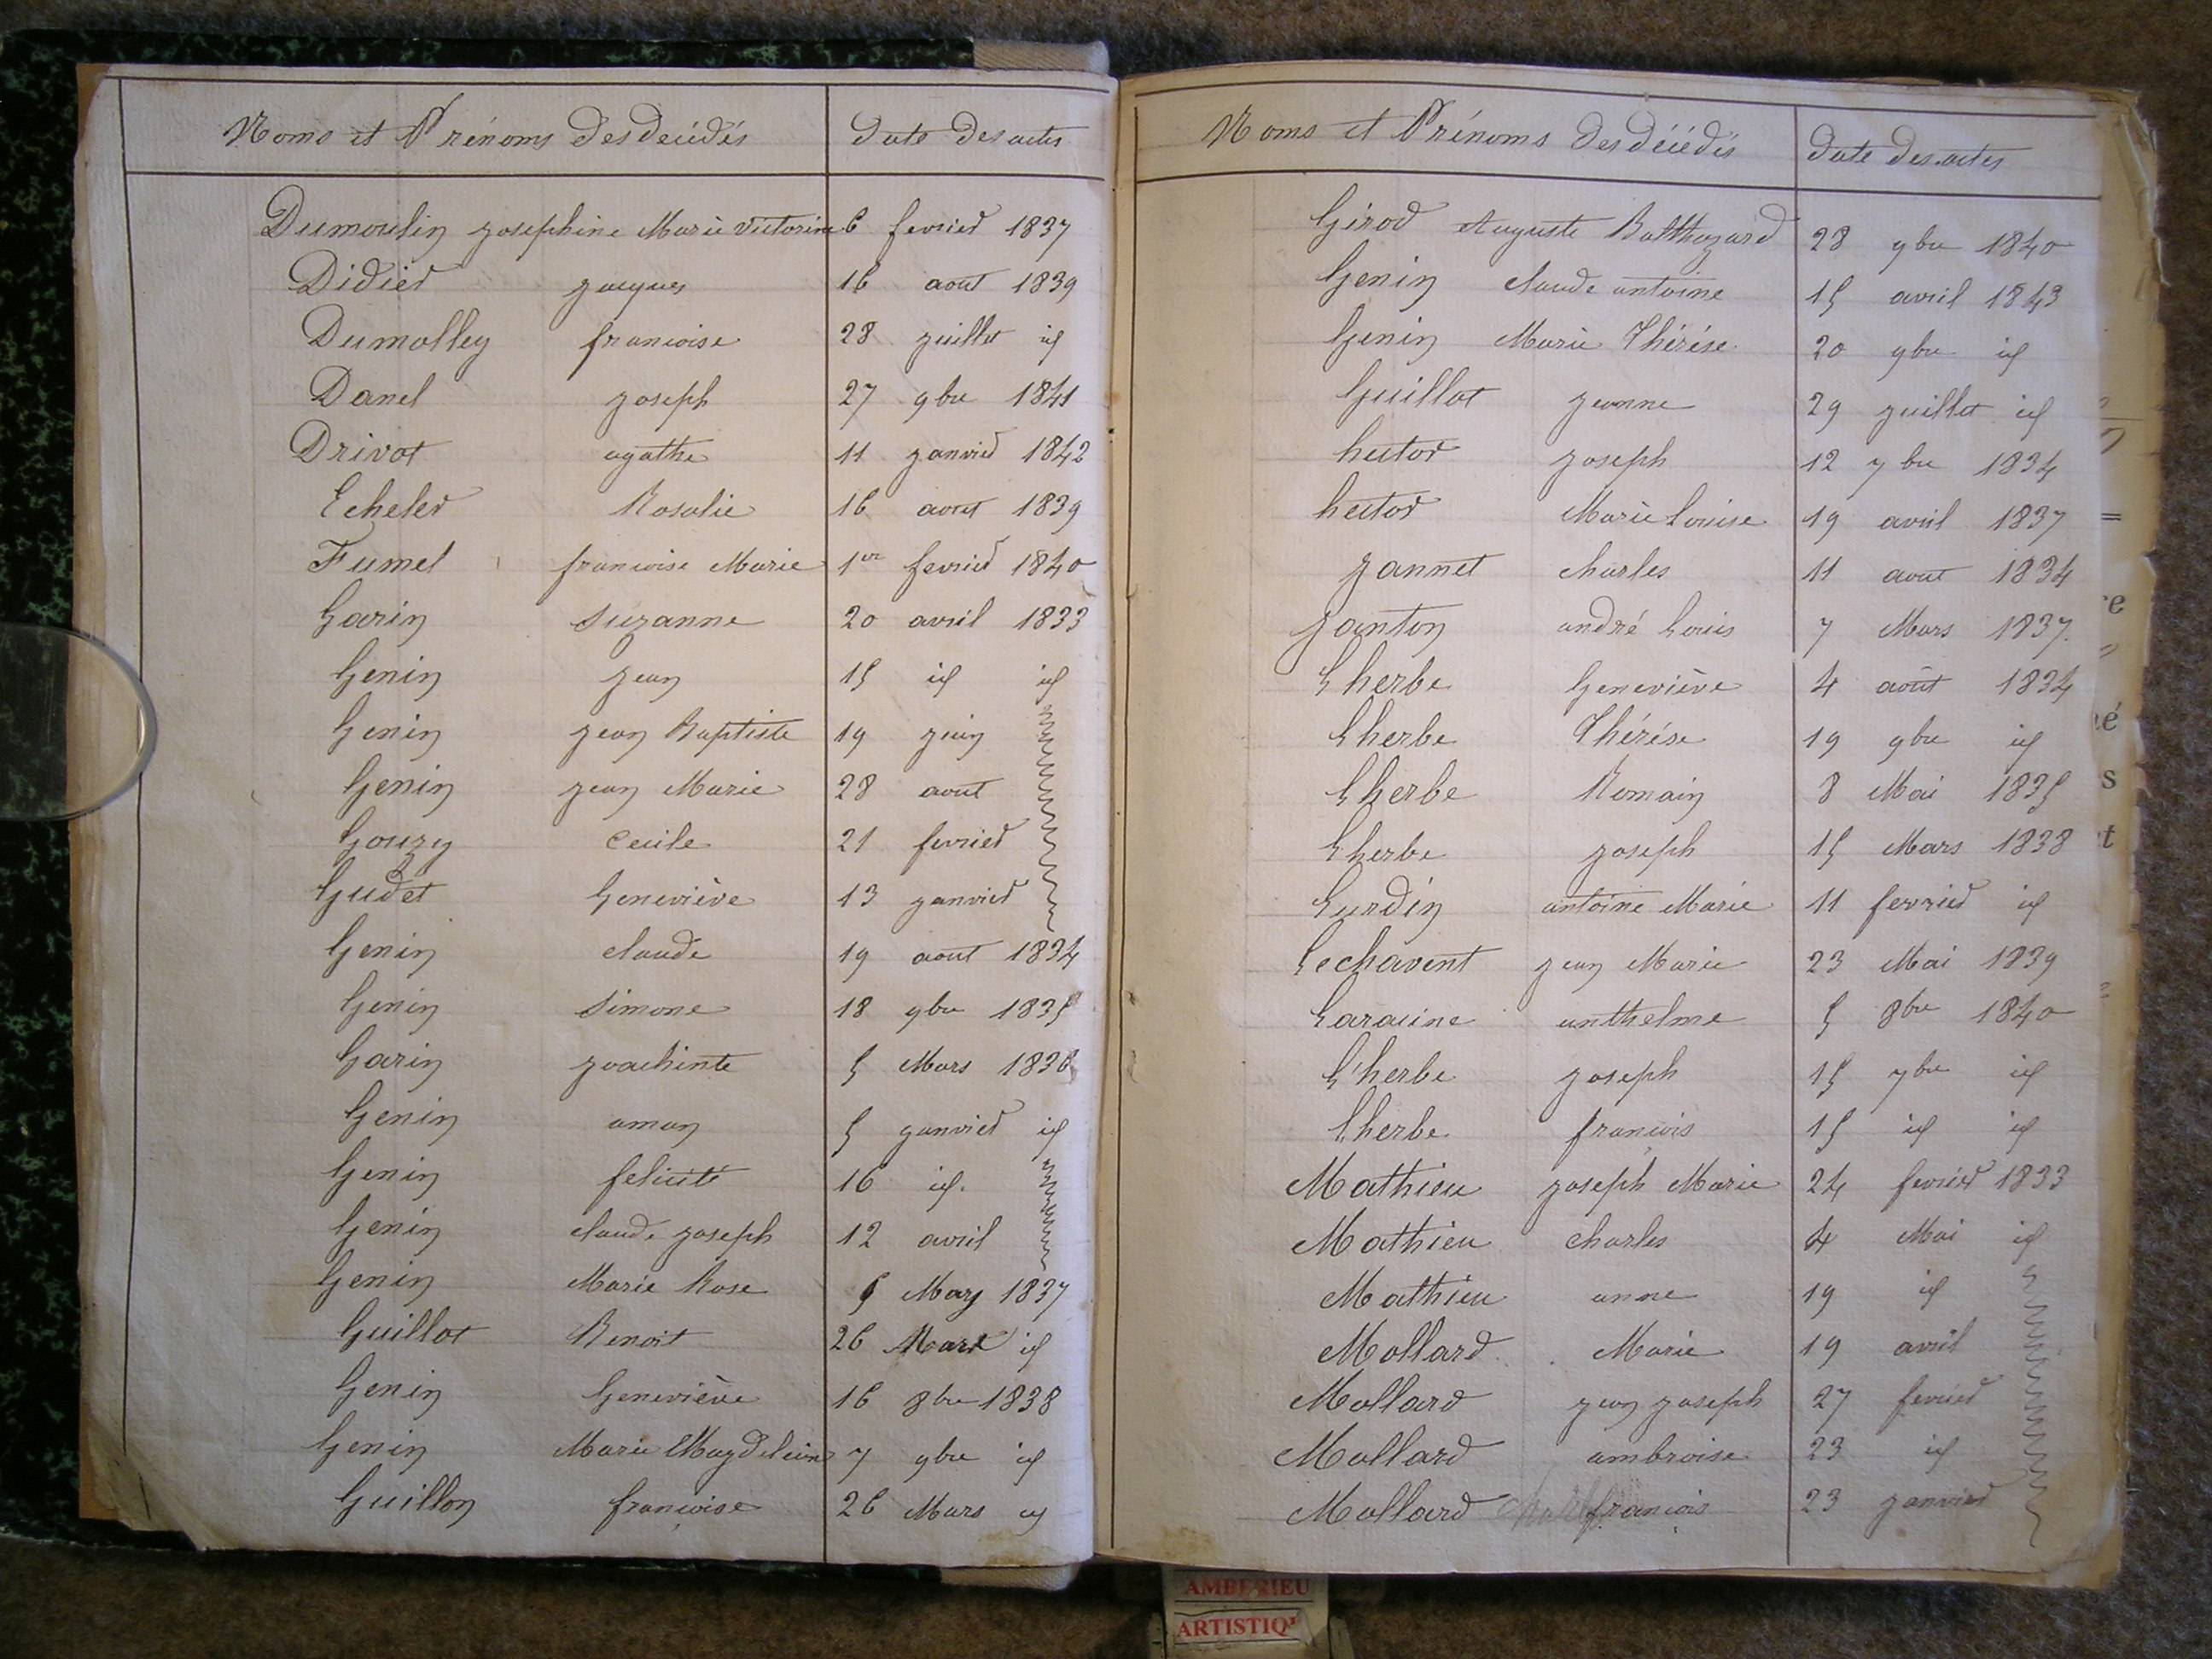 Noms et Prénoms des décédés Date des actes
Dumoulin josephine Marie victorine 6 fevrier 1837
Didier jacques 16 aout 1839
Dumolley francoise 28 juillet id
Danel joseph 27 9bre 1841
Drivot agathe 11 janvier 1842
Echeler Rosalie 16 aout 1839
Fumel francoise Marie 1er fevrier 1840
Garin suzanne 20 avril 1833
Genin jean 15 id id
Genin jean Baptiste 19 juin
Genin jean Marie 28 aout
Gouzy Cecile 21 fevrier
Gudet Geneviève 13 janvier
Genin claude 19 aout 1834
Genin simone 18 9bre 1835
Garin joachinte 5 Mars 1836
Genin aman 5 janvier id
Genin felicité 16 id.
Genin claude joseph 12 avril
Genin Marie Rose 5 May 1837
Guillot Benoit 26 Mars id
Genin Geneviève 16 8bre 1838
Genin Marie Magdeleine 7 9bre id
Guillon francoise 26 Mars id
Noms et Prénoms des décédés Date des actes
Girod Auguste Balthazard 28 9bre 1840
Genin claude antoine 15 avril 1843
Genin Marie Thérése 20 9bre id
Guillot jeanne 29 juillet id
hector joseph 12 7bre 1834
hector Marie Louise 19 avril 1837
jannet charles 11 aout 1834
janton andré Louis 7 Mars 1837.
Lherbe Geneviève 4 août 1834
Lherbe Thérése 19 9bre id
Lherbe Romain 8 Mai 1835
Lherbe joseph 15 Mars 1838
Lurdin antoine Marie 11 fevrier id
Lechavent jean Marie 23 Mai 1839
Laracine anthelme 5 8bre 1840
L'herbe joseph 15 7bre id
Lherbe francois 15 id id
Mathieu joseph Marie 24 fevrier 1833
Mathieu charles 4 Mai id
Mathieu anne 19 id
Mollard Marie 19 avril
Mollard jean joseph 27 fevrier
Mollard ambroise 23 id
Mollard francois 23 janvier
AMBERIEU
ARTISTIQ